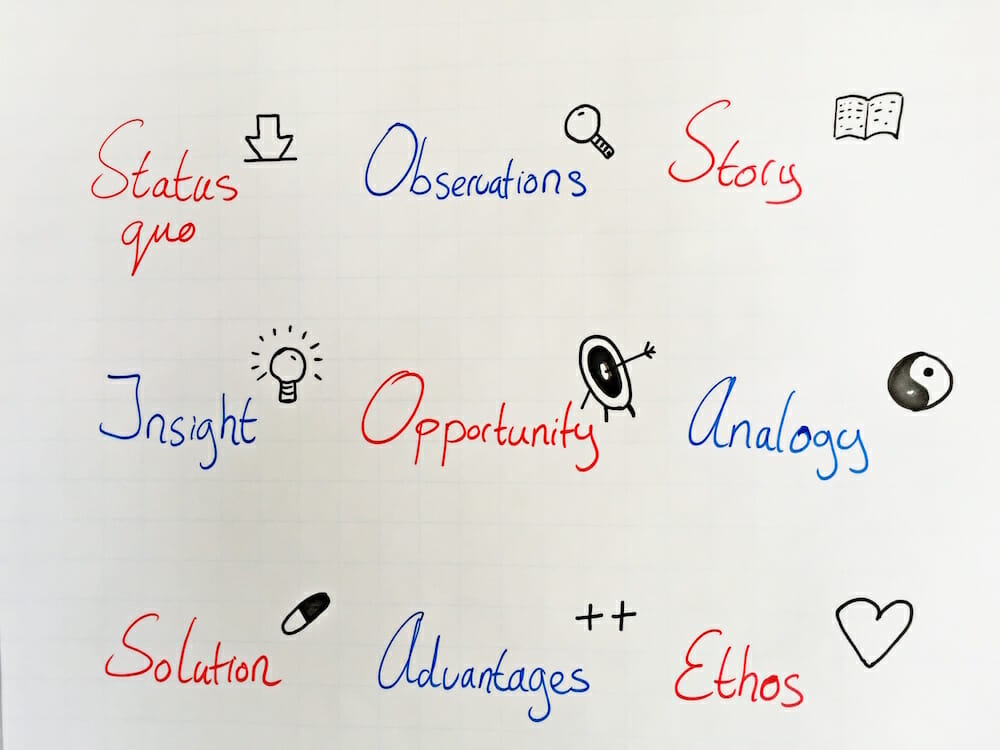 Status
quo
Observations
Story
Insight
Opportunity
Analogy
Solution
++
Advantages
Ethos